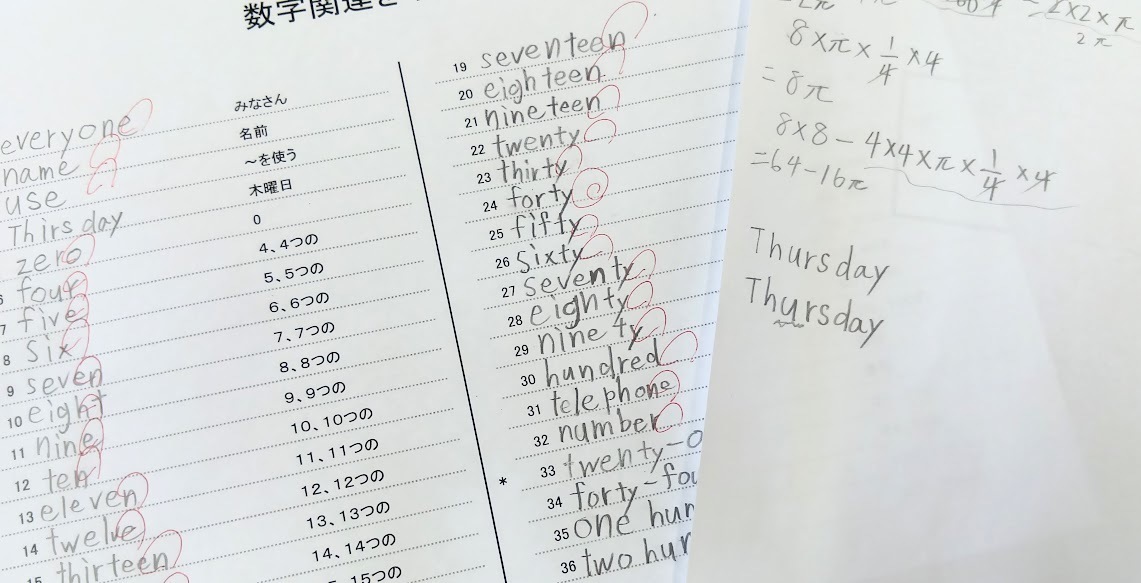 数字関連
everyone みなさん
name 名前
use ～を使う
Thirsday 木曜日
zero 0
four 4、4つの
7 five 5、5つの
8 six 6、6つの
9 seven 7、7つの
10 eight 8、8つの
11 nine 9、9つの
12 ten 10、10つの
13 eleven 11、11つの
14 twelve 12、12つの
15 thirteen 13、13つの
14、14つの
15つの
19 seventeen
20 eighteen
21 nineteen
22 twenty
23 thirty
24 forty
25 fifty
26 sixty
27 seventy
28 eighty
29 nine 4y
30 hundred
31 telephone
32 number
33 twenty-o
* 34 forty-fou
35 one hun
36 two hur
×2×π
2π
8×π×1/4×4
=8π
8×8-4×4×π×1/4×4
=64-16π
Thursday
Thursday